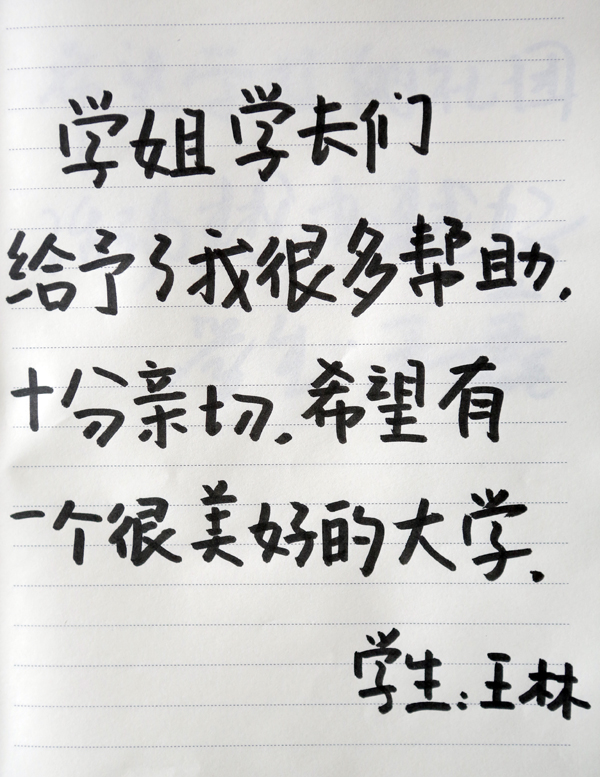 学姐学长们
给予了我很多帮助,
十分亲切.希望有
一个很美好的大学.
学生:王林